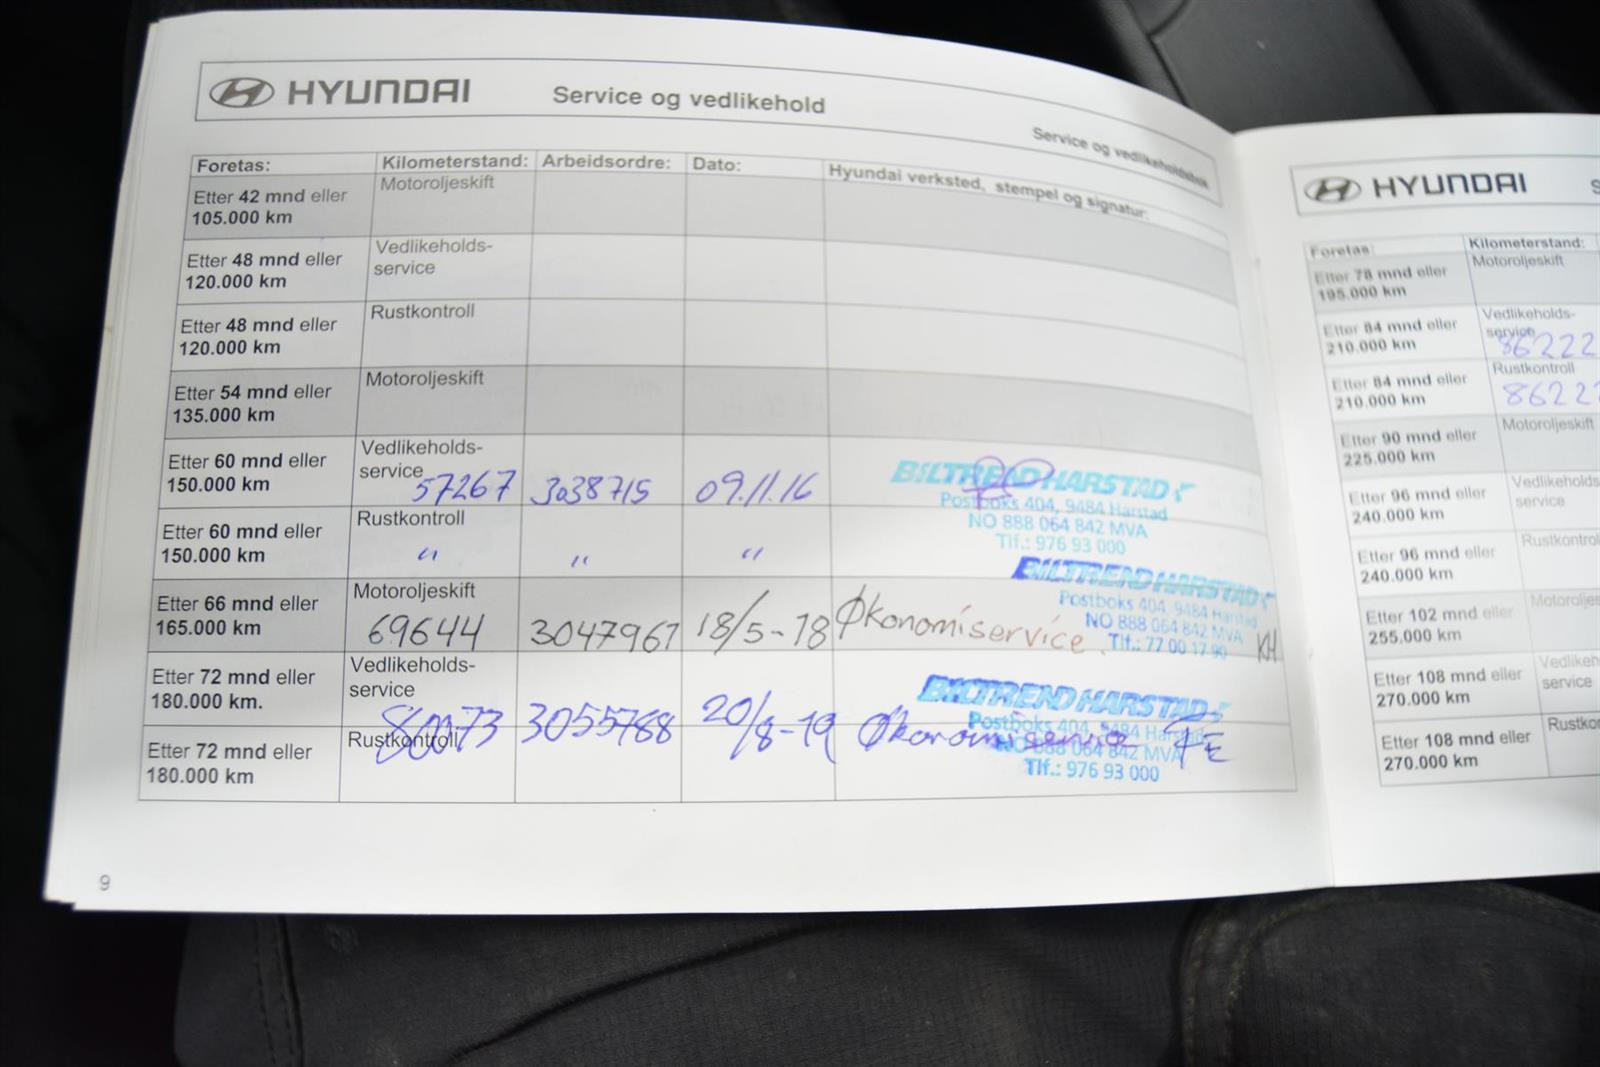 HYUNDAI Service og vedlikehold
Service og vedlikeholdsbok
Foretas: Kilometerstand: Arbeidsordre: Dato: Hyundai verksted, stempel og signatur:
Etter 42 mnd eller Motoroljeskift
105.000 km
Etter 48 mnd eller Vedlikeholds-
120.000 km service
Etter 48 mnd eller Rustkontroll
120.000 km
Etter 54 mnd eller Motoroljeskift
135.000 km
Etter 60 mnd eller Vedlikeholds-
150.000 km service 57267 3038715 09.11.16
BILTREND HARSTAD
Postboks 404, 9484 Harstad
NO 888 064 842 MVA
Tlf.: 976 93 000
Etter 60 mnd eller Rustkontroll
150.000 km " " "
Etter 66 mnd eller Motoroljeskift
165.000 km 69644 3047961 18/5-18 Økonomiservice. KH
BILTREND HARSTAD
Postboks 404, 9484 Harstad
NO 888 064 842 MVA
Tlf.: 77 00 17 90
Etter 72 mnd eller Vedlikeholds-
180.000 km. service
80073 3055788 20/8-19 Økonomiservice FE
BILTREND HARSTAD
Postboks 404, 9484 Harstad
NO 888 064 842 MVA
Tlf.: 976 93 000
Etter 72 mnd eller Rustkontroll
180.000 km
9
HYUNDAI S
Foretas: Kilometerstand:
Etter 78 mnd eller Motoroljeskift
195.000 km
Etter 84 mnd eller Vedlikeholds-
210.000 km service 86222
Etter 84 mnd eller Rustkontroll
210.000 km 8622
Etter 90 mnd eller Motoroljeskift
225.000 km
Etter 96 mnd eller Vedlikeholds
240.000 km service
Etter 96 mnd eller Rustkontrol
240.000 km
Etter 102 mnd eller Motoroljes
255.000 km
Etter 108 mnd eller Vedlikeh
270.000 km service
Etter 108 mnd eller Rustko
270.000 km